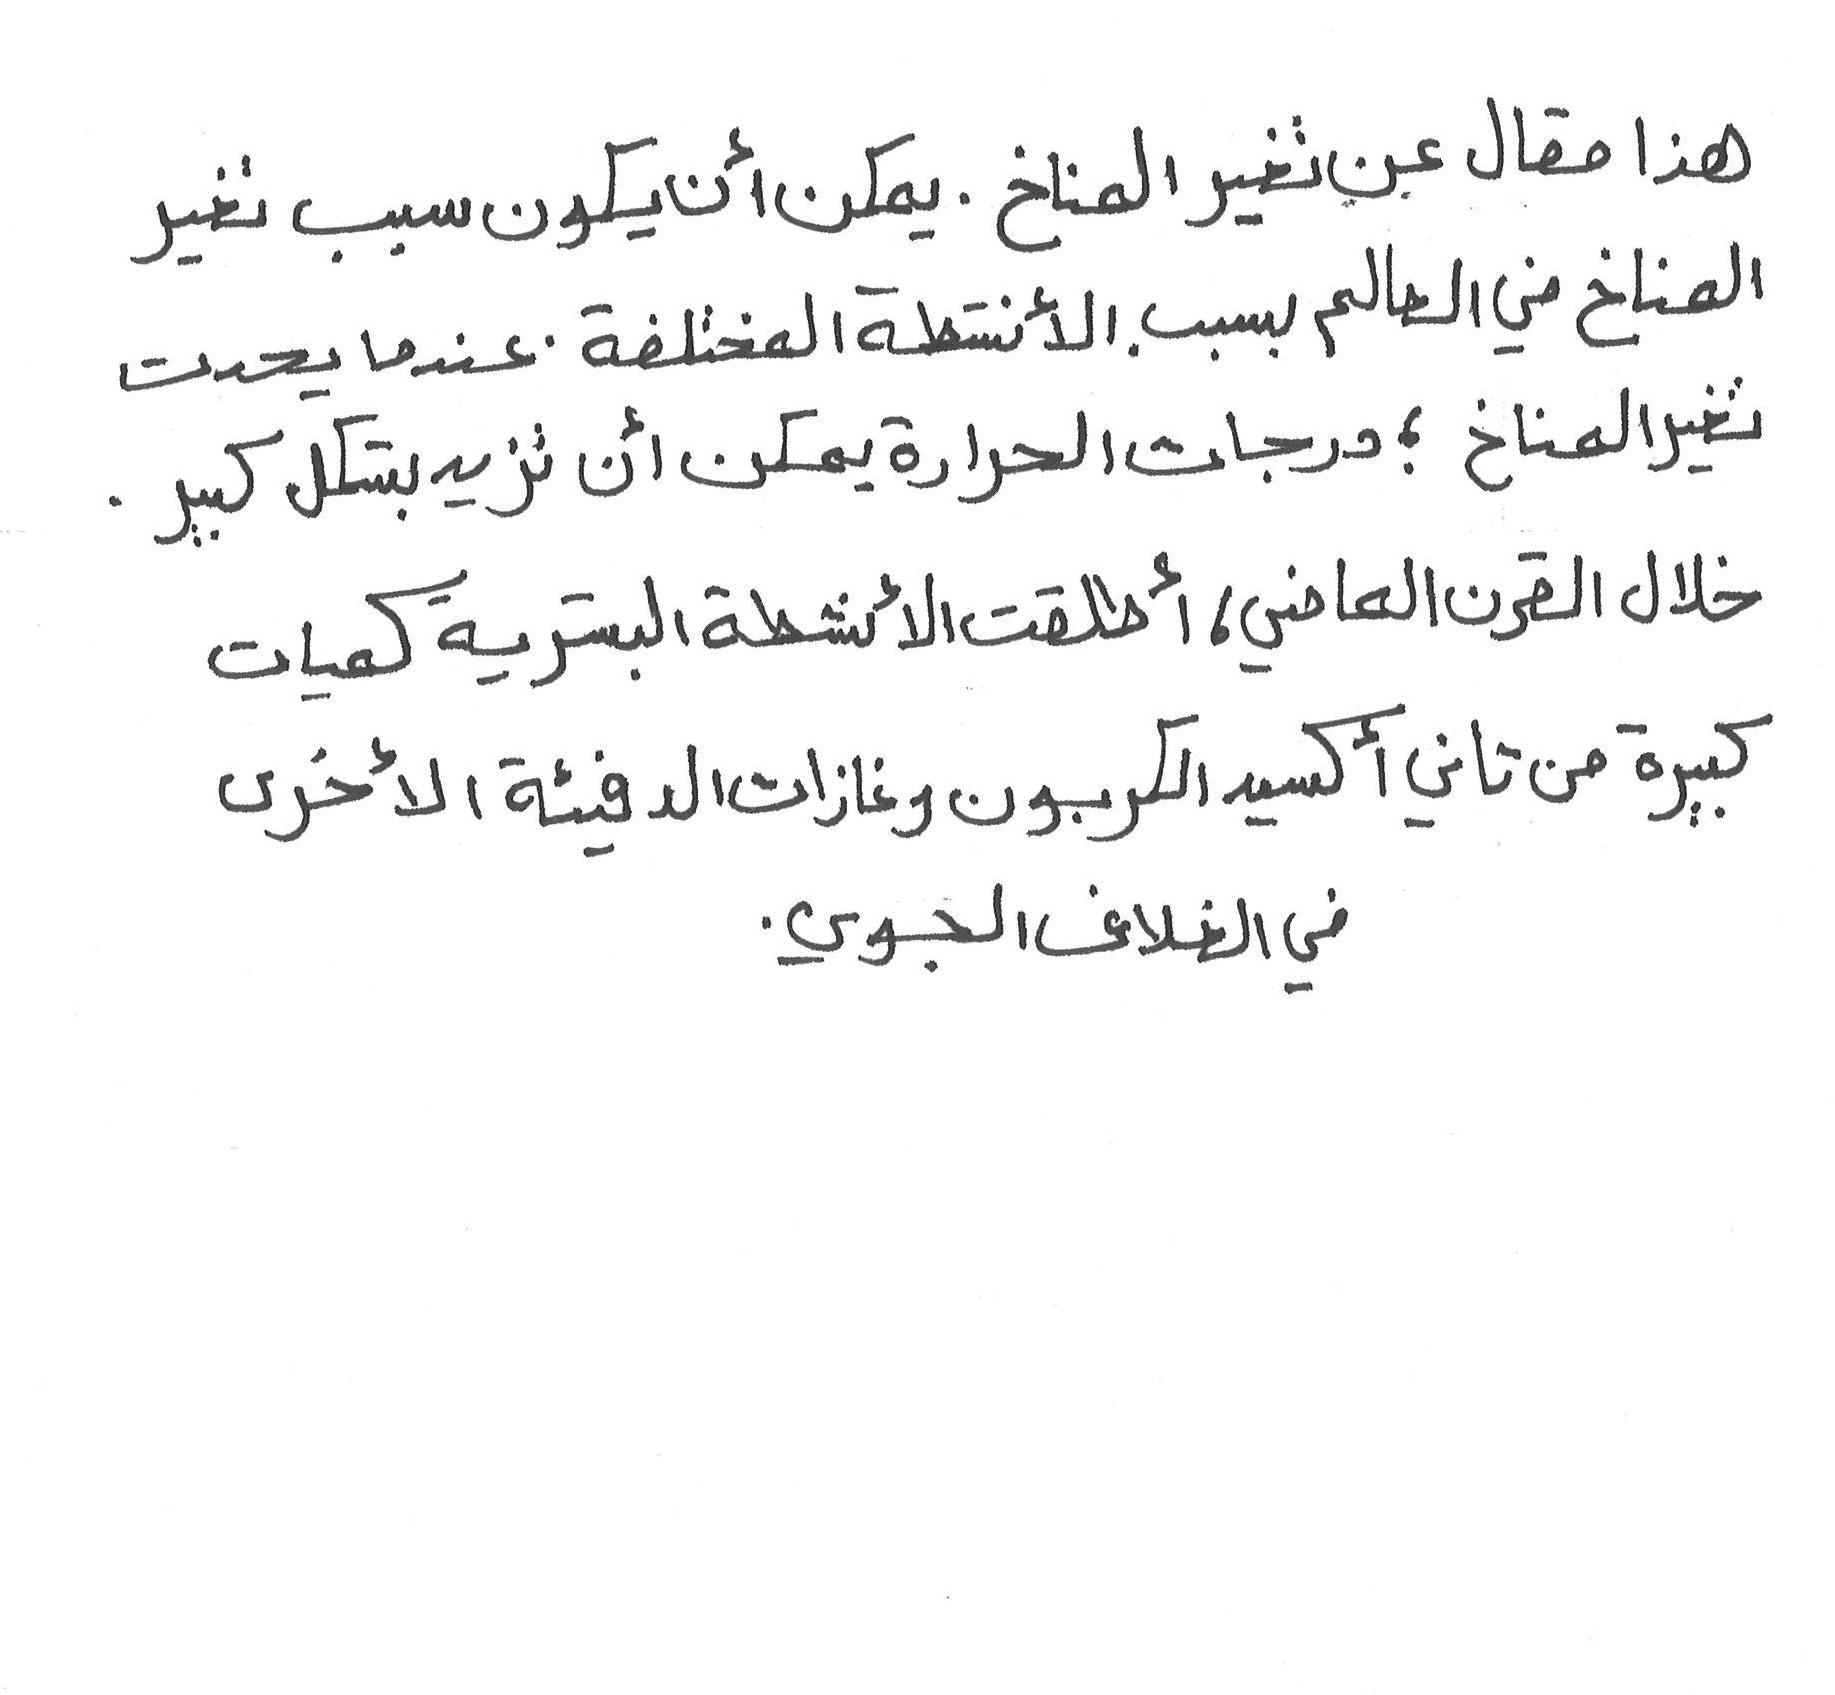 هذا مقال عن تغير المناخ . يمكن أن يكون سبب تغير
المناخ في العالم بسبب الأنشطة المختلفة . عندما يحدث
تغير المناخ ؛ درجات الحرارة يمكن أن تزيد بشكل كبير .
خلال القرن الماضي ، أطلقت الأنشطة البشرية كميات
كبيرة من ثاني أكسيد الكربون وغازات الدفيئة الأخرى
في الغلاف الجوي .